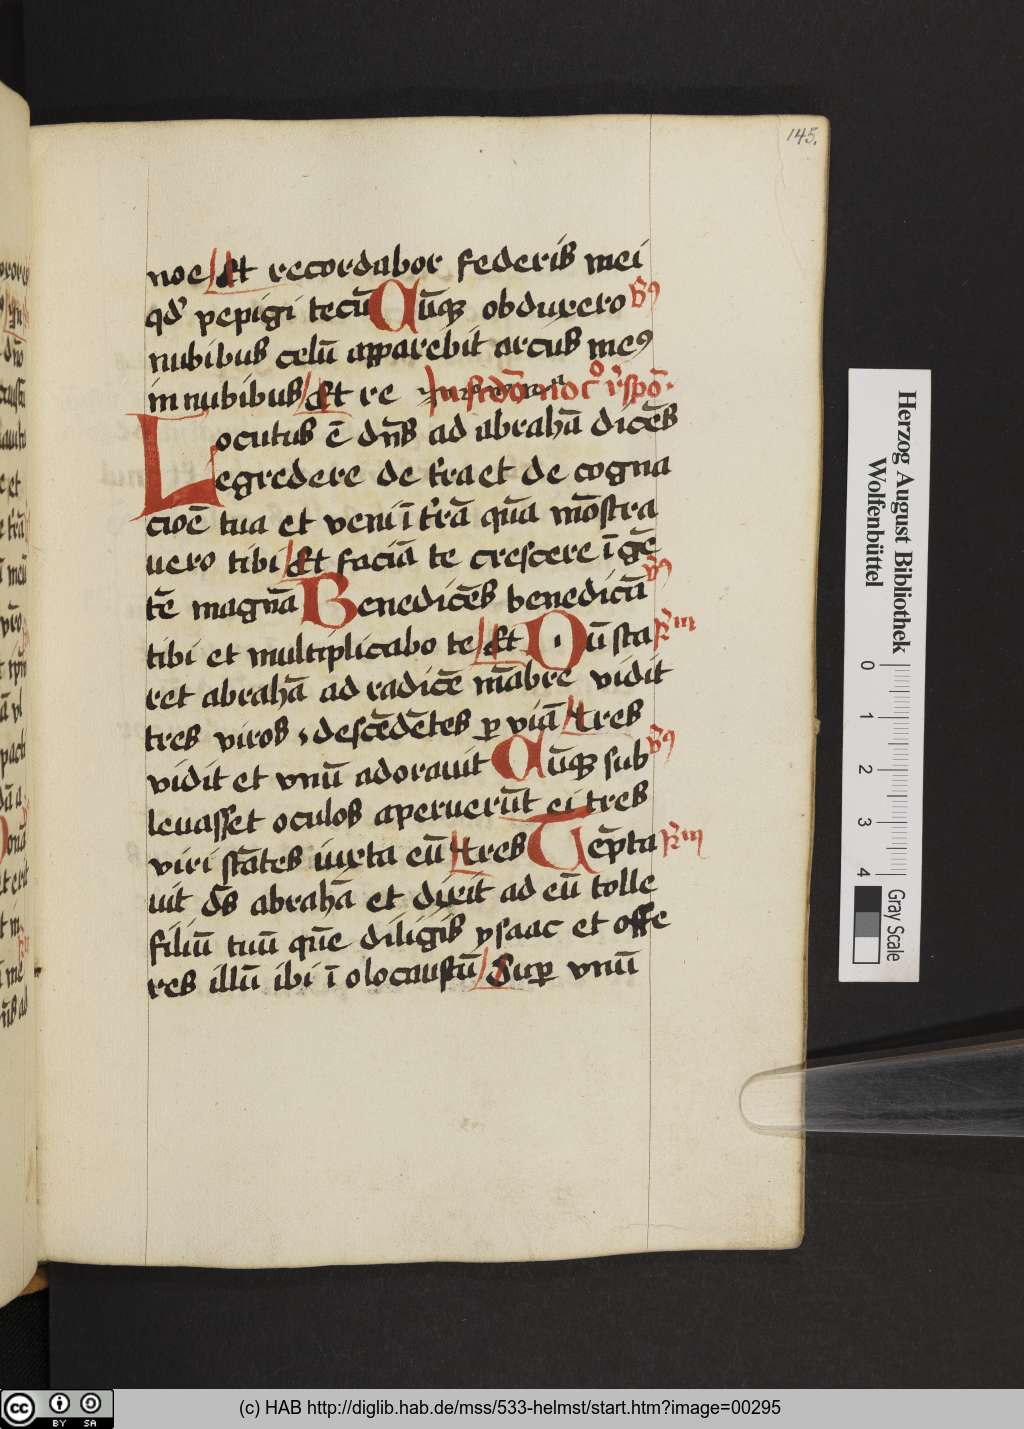 145.
noe Et recordabor federis mei
qd' pepigi tecū Cūqꝫ obduxero v̄s
nubibus celū apparebit arcus me9
in nubibus Et re In scdō noc̊ r̄spō·
Locutus ē dn̄s ad abrahā dicēs
egredere de t'ra et de cogna
cioē tua et veni ī t'rā quā mōstra
uero tibi Et faciā te crescere ī gē
tē magnā Benedicēs benedicā v̄s
tibi et multiplicabo te Et Dū sta R' iii
ret abrahā ad radicē mābre vidit
tres viros descēdētes ꝑ viā tres
vidit et vnū adorauit Cūqꝫ sub v̄s
leuasset oculos aperuerūt ei tres
viri stātes iuxta eū tres Tēpta R' iii
uit ds̄ abrahā et dixit ad eū tolle
filiū tuū quē diligis ysaac et offe
res illū ibi ī olocaustū Suꝑ vnū
Herzog August Bibliothek
Wolfenbüttel
0
1
2
3
4
Gray Scale
cc BY SA
(c) HAB http://diglib.hab.de/mss/533-helmst/start.htm?image=00295